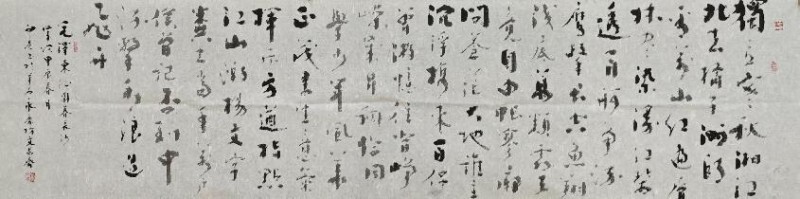 獨立寒秋湘江
北去橘子洲頭
看萬山紅遍層
林盡染漫江碧
透百舸爭流
鷹擊長空魚翔
淺底萬類霜天
競自由悵寥廓
問蒼茫大地誰主
沉浮攜來百侣
曾游憶往昔崢
嶸歲月稠恰同
學少年風華
正茂書生意氣
揮斥方遒指點
江山激揚文字
糞土當年萬户
侯曾記否到中
流擊水浪遏
飛舟
毛澤東沁園春長沙
甲辰春月